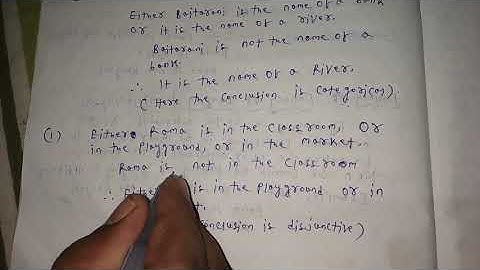 Either Baitarani is the name of a bank
or it is the name of a river.
Baitarani is not the name of a
bank.
∴ It is the name of a River.
(Here the conclusion is categorical)
(1) Either Rama is in the classroom, or
in the playground, or in the market.
Rama is not in the classroom
∴ Either is in the playground or in
conclusion is disjunctive)